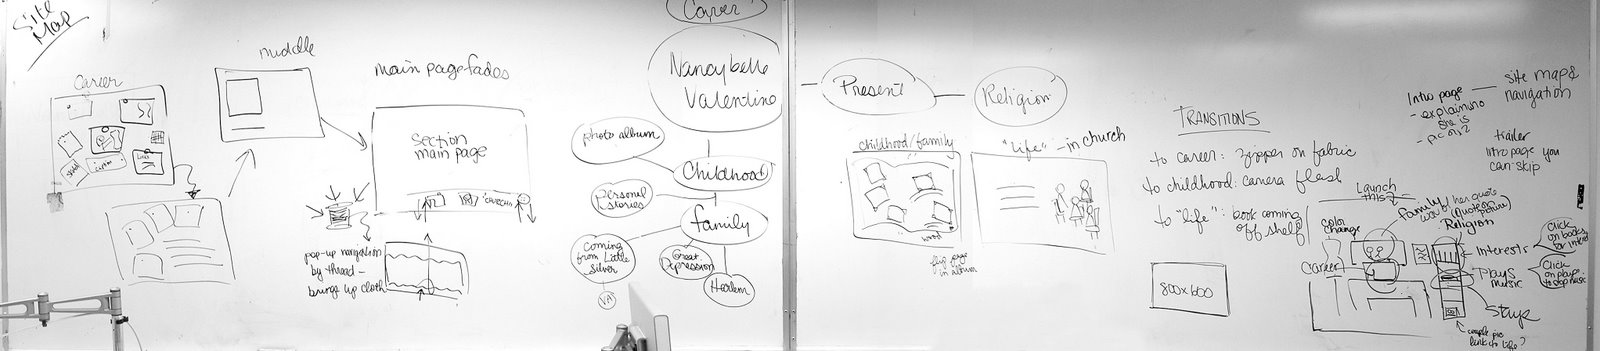 Site
Map
Career
middle
main page fades
Section
main page
pop-up navigation
by thread -
brings up cloth
Career
Nancybelle
Valentine
photo album
Childhood
Personal
stories
family
Coming
from Little
Silver
VA
Great
Depression
Harlem
Present
Religion
childhood/family
wood
flip page
in album
"Life" - in church
TRANSITIONS
to career: zipper on fabric
to childhood: camera flash
to "life": book coming
off shelf
800x600
Intro page
- explaining
she is
site map &
navigation
trailer
intro page you
can skip
Launch
this
color
change
Family
Religion
Career
Interests
Plays
music
Stays
Click
on books
for
Click
to stop music
couple pic
link to life?